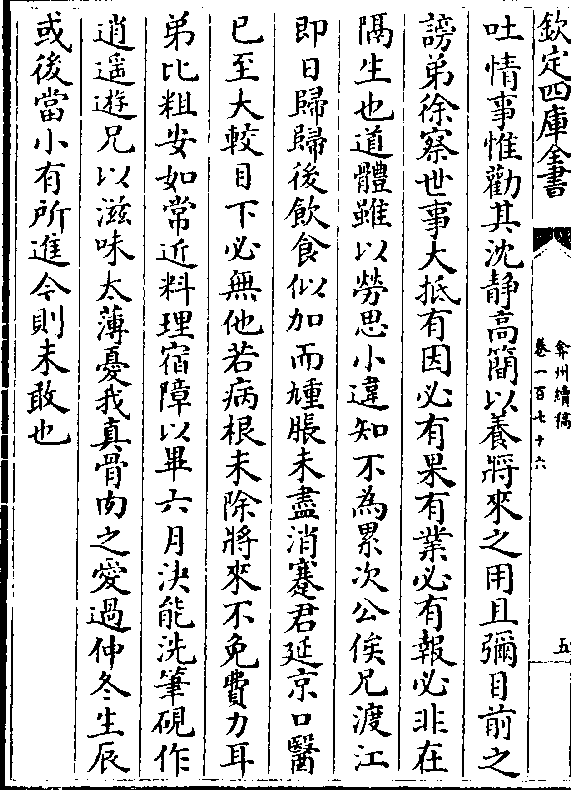 欽定四庫全書
弇州續稿
卷一百七十六
五
吐情事惟勸其沈静高簡以養將來之用且彌目前之
謗弟徐察世事大抵有因必有果有業必有報必非在
隔生也道體雖以勞思小違知不為累次公俟兄渡江
即日歸歸後飲食似加而尰脹未盡消蹇君延京口醫
已至大較目下必無他若病根未除將來不免費力耳
弟比粗安如常近料理宿障以畢六月決能洗筆硯作
逍遥遊兄以滋味太薄憂我真骨肉之愛過仲冬生辰
或後當小有所進今則未敢也